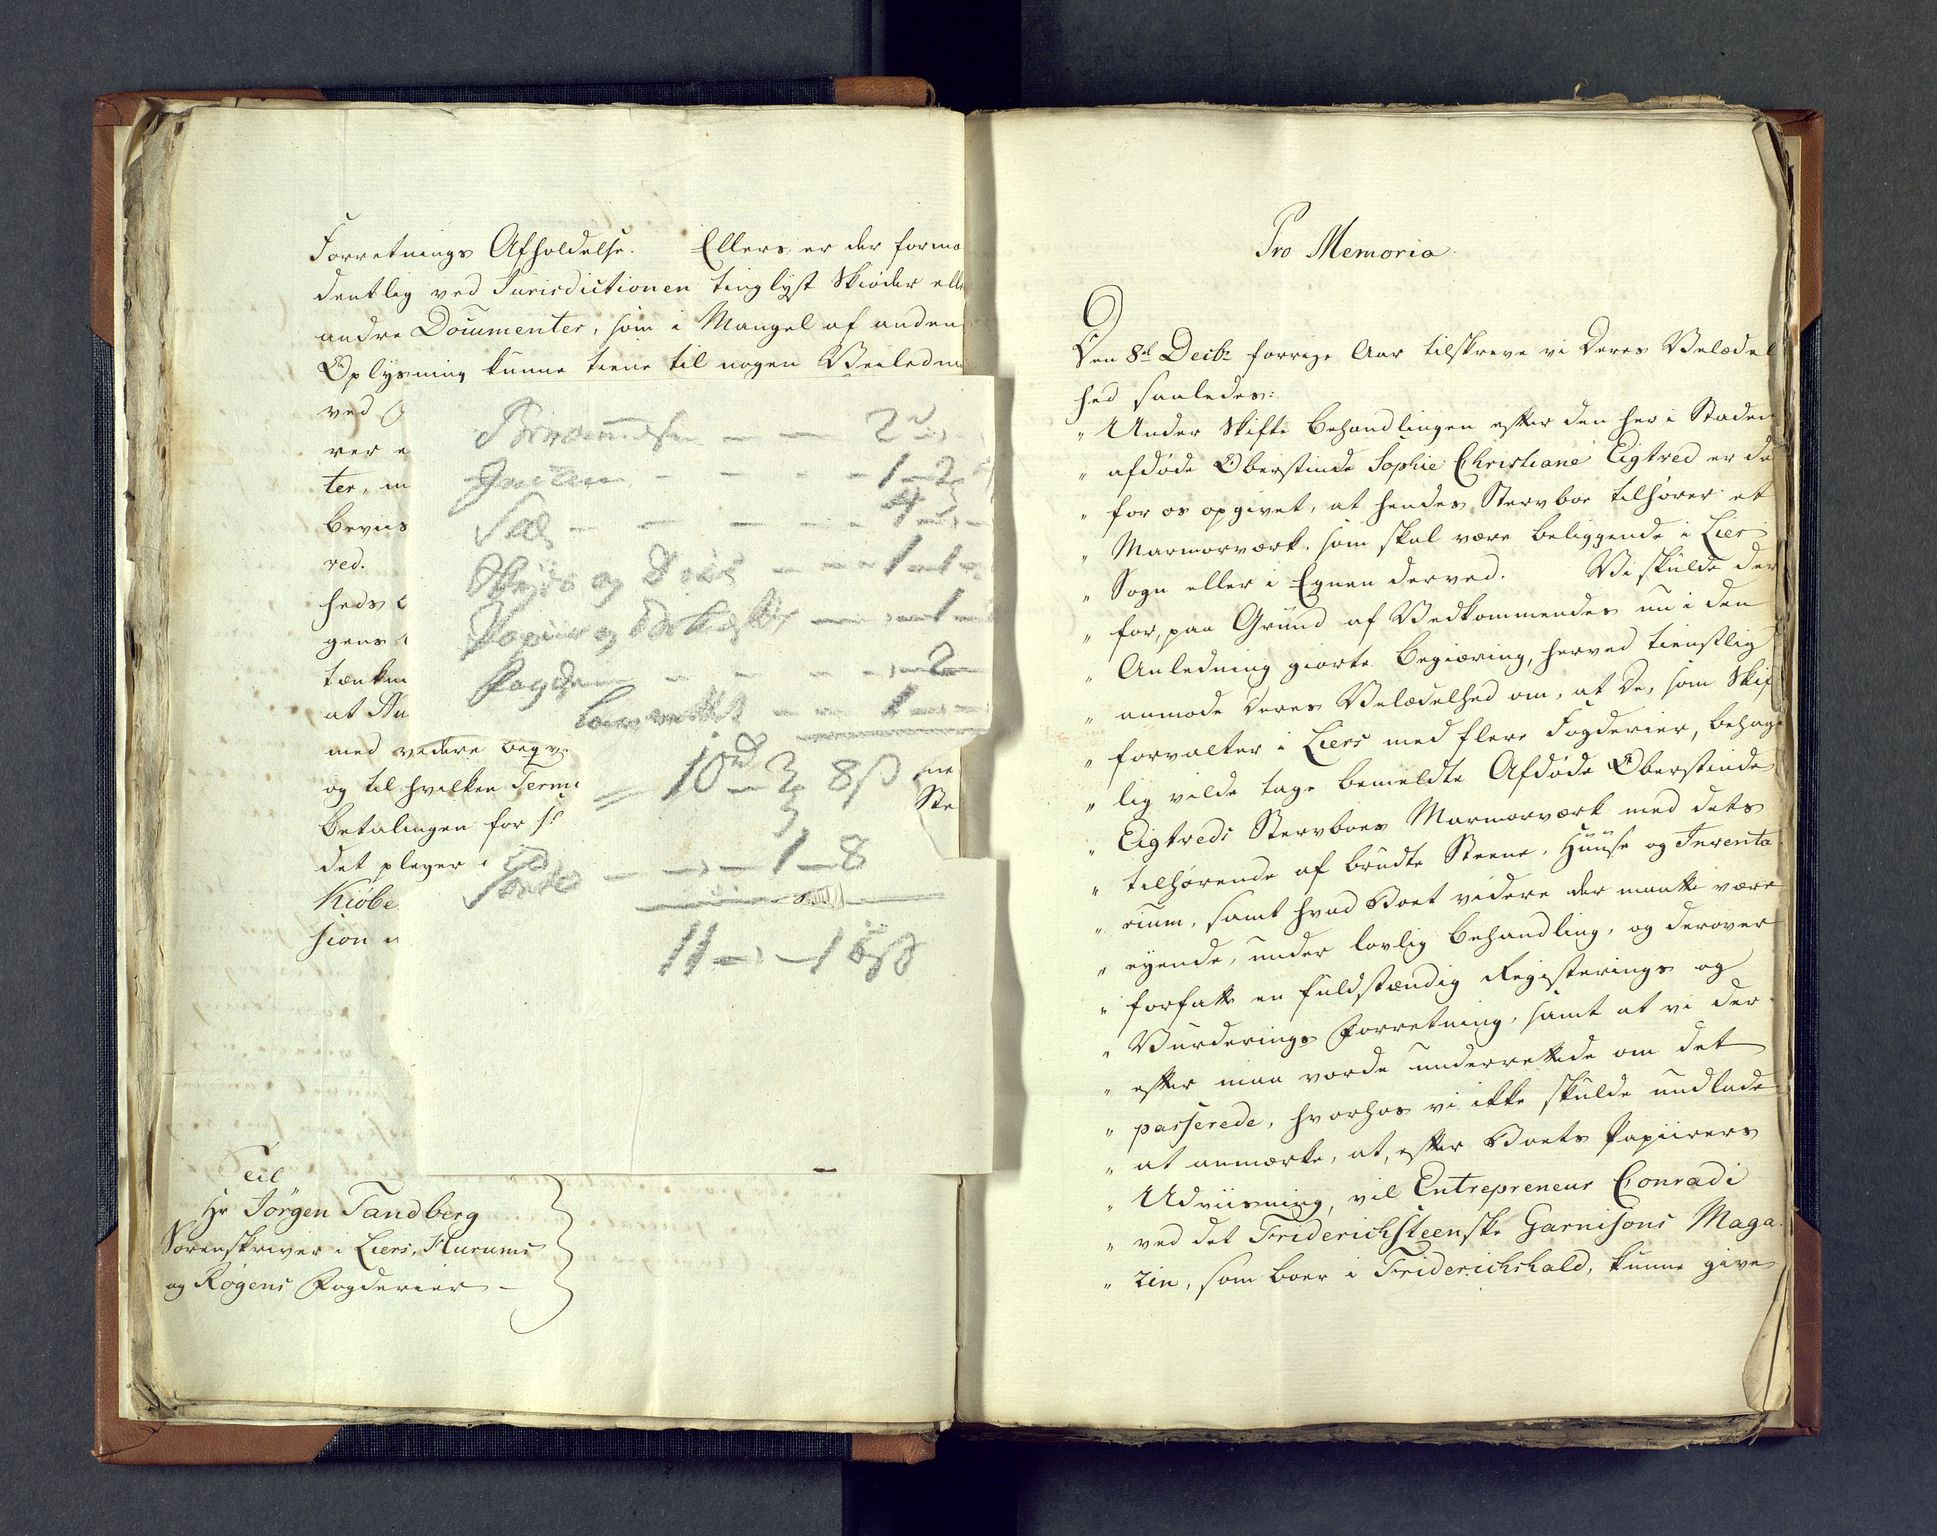 Forretnings Afholdelse. Ellers er der forme
dentlig ved Jurisdictionen tinglyst Skiøder elle
andre Documenter, som i Mangel af anden
Oplysning kunne tiene til nogen Veiledni
ved
ver
ter,
beviis
red.
heds
gens
tænkni
at
med videre begv.
og til hvilken Termi
betalingen for
det pleyer i
Kiøbe
sion
ene
Ste
2
1 - 2
4
og 1 - 1
Papiir og 1
Fogden 2
1
10 - 2 8 ß
1 - 8
11 - 1 8 ß
Til
Hr Jörgen Tandberg
Sorenskriver i Liers, Hurums
og Rögens Fogderier -
Pro Memoria
Den 8de Decbr forrige Aar tilskreve vi Deres Velædel
hed saaledes:
" Under Skifte Behandlingen efter den her i Staden
" afdøde Oberstinde Sophie Christiane Eigtved er de
" for os opgivet, at hendes Stervboe tilhører et
" Marmorværk, som skal være beliggende i Lier
" Sogn eller i Egnen derved. Vi skulde der
" for, paa Grund af Vedkommendes nu i den
" Anledning giorte Begiæring, herved tienstlig
" anmode Deres Velædelhed om, at De, som Skif
" forvalter i Liers med flere Fogderier, behage
" lig vilde tage bemeldte Afdøde Oberstinde
" Eigtveds Stervboes Marmorværk med dets
" tilhørende af brudte Steene, Huuse og Inventa
" rium, samt hvad Boet videre der maatte være
" eyende, under lovlig Behandling, og derover
" forfatte en fuldstændig Registerings og
" Vurderings Forretning, samt at vi der
" efter maa vorde underrettede om det
" passerede, hvorhos vi ikke skulde undlade
" at anmærke, at, efter Boets Papiirers
" Udviisning, vil Entrepreneur Conradi
" ved det Friderichsteenske Garnisons Maga
" zin, som boer i Friderichshald, kunne give